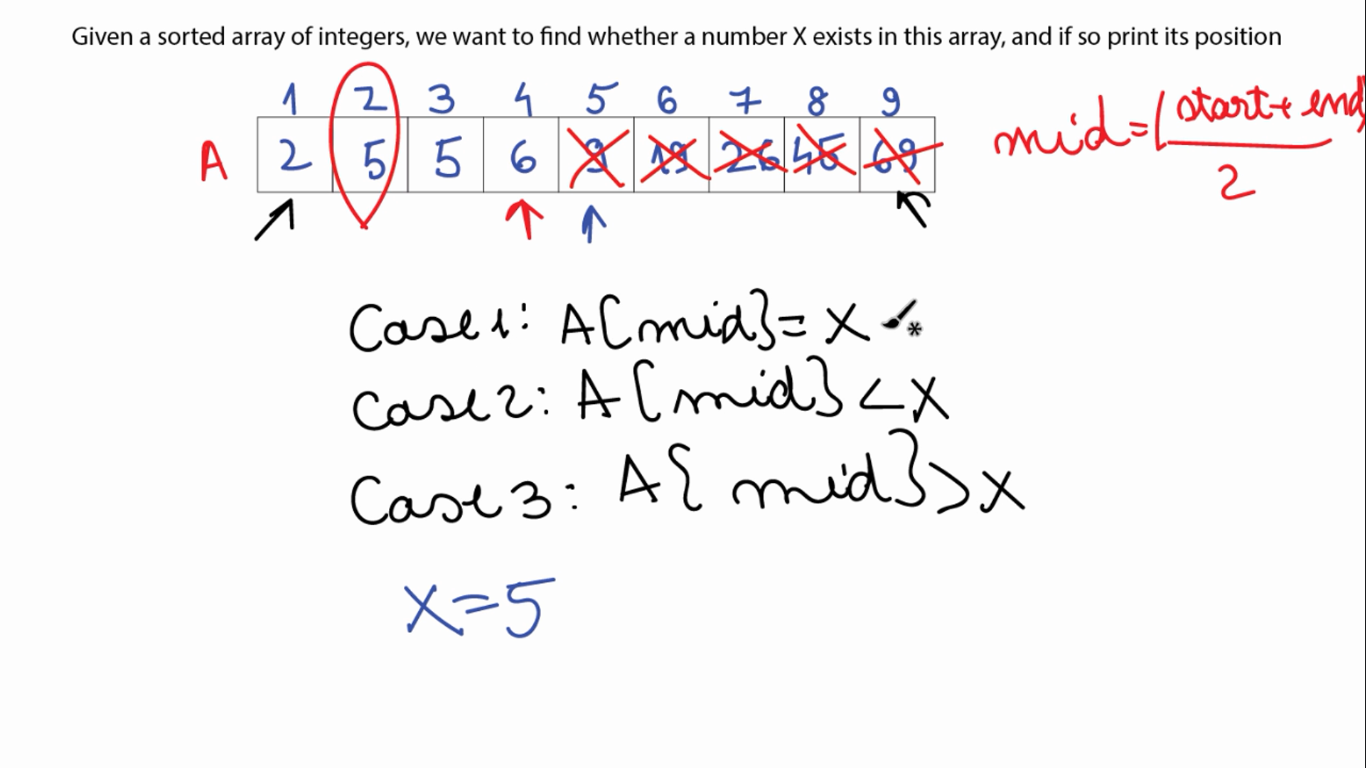 Given a sorted array of integers, we want to find whether a number X exists in this array, and if so print its position
1 2 3 4 5 6 7 8 9
A 2 5 5 6 9 19 26 45 69
mid=(start+end)
2
Case1: A[mid]=X
*
Case2: A[mid]<X
Case3: A{mid}>X
X=5